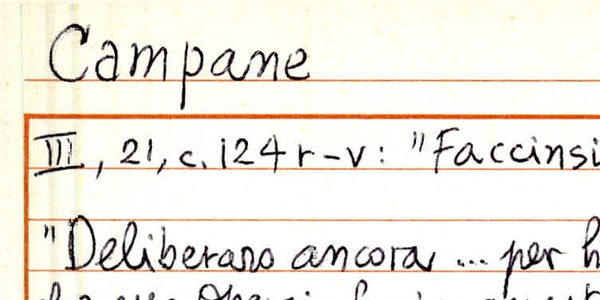 Campane
III, 21, c. 124 r-v: "Faccinsi
"Deliberano ancora ... per h